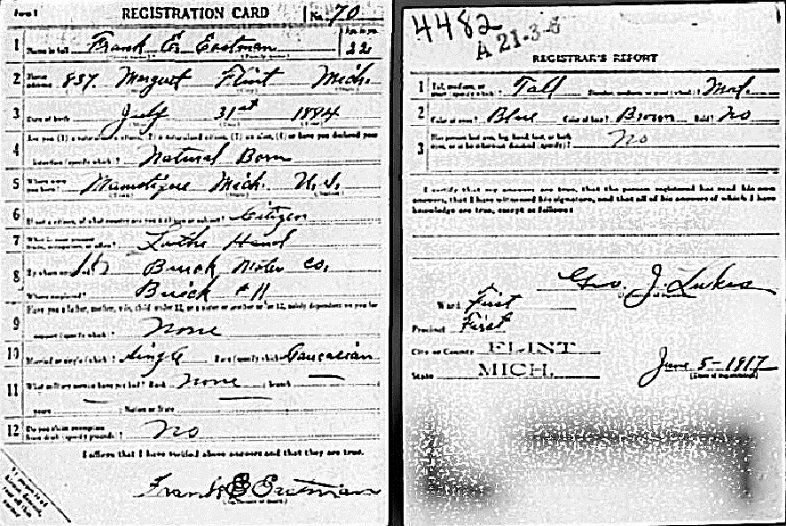 Form 1 REGISTRATION CARD No. 70
Age in yrs.
1 Name in full Frank E. Eastman 22
2 Home address 857 Flint Mich.
3 Date of birth July 31st 1894
4 Are you (1) a natural-born citizen, (2) a naturalized citizen, (3) an alien, (4) or have you declared your
intention (specify which)? Natural Born
5 Where were you born? Manistique Mich. U.S.
6 If not a citizen, of what country are you a citizen or subject? Citizen
7 What is your present trade, occupation, or office? Lathe Hand
8 By whom employed? Buick Motor Co.
Where employed? Buick # 11
9 Have you a father, mother, wife, child under 12, or a sister or brother under 12, solely dependent on you for
support (specify which)? None
10 Married or single (which)? Single Race (specify which)? Caucasian
11 What military service have you had? Rank None branch —
years — ; Nation or State —
12 Do you claim exemption from draft (specify grounds)? No
I affirm that I have verified above answers and that they are true.
Frank E Eastman
4482
A 21-3-6
REGISTRAR'S REPORT
1 Tall, medium, or short (specify which)? Tall Slender, medium, or stout (which)? Med
2 Color of eyes? Blue Color of hair? Brown Bald? No
3 Has person lost arm, leg, hand, foot, or both
eyes, or is he otherwise disabled (specify)? No
I certify that my answers are true, that the person registered has read his own
answers, that I have witnessed his signature, and that all of his answers of which I have
knowledge are true, except as follows:
Geo. J. Lukes
Ward First
Precinct First
City or County FLINT
State MICH. June 5-1917
(Date of registration)